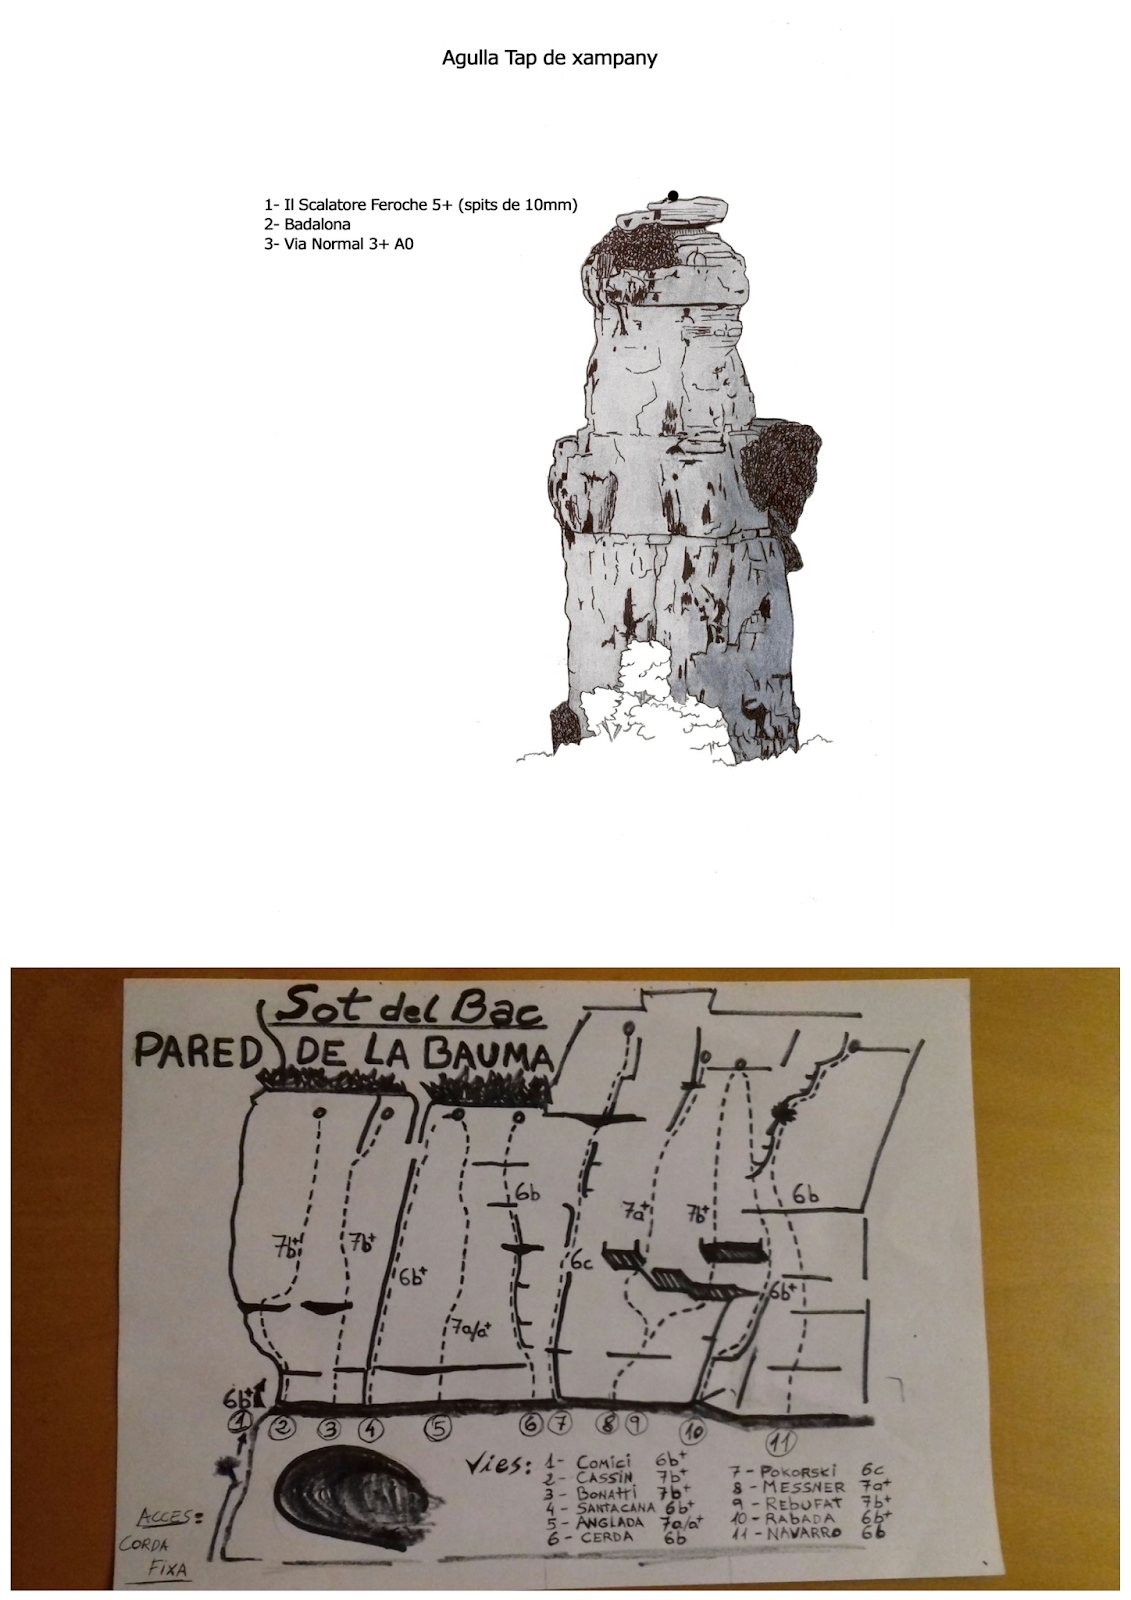 Agulla Tap de xampany
1- Il Scalatore Feroche 5+ (spits de 10mm)
2- Badalona
3- Via Normal 3+ A0
Sot del Bac
PARED DE LA BAUMA
6b
7a+
7b+
6b
7b+
7b+
6c
6b+
6b+
7a/a+
6b+
1
2
3
4
5
6
7
8
9
10
11
Vies:
1- COMICI 6b+
2- CASSIN 7b+
3- BONATTI 7b+
4- SANTACANA 6b+
5- ANGLADA 7a/a+
6- CERDA 6b
7- POKORSKI 6c
8- MESSNER 7a+
9- REBUFAT 7b+
10- RABADA 6b+
11- NAVARRO 6b
ACCES:
CORDA
FIXA